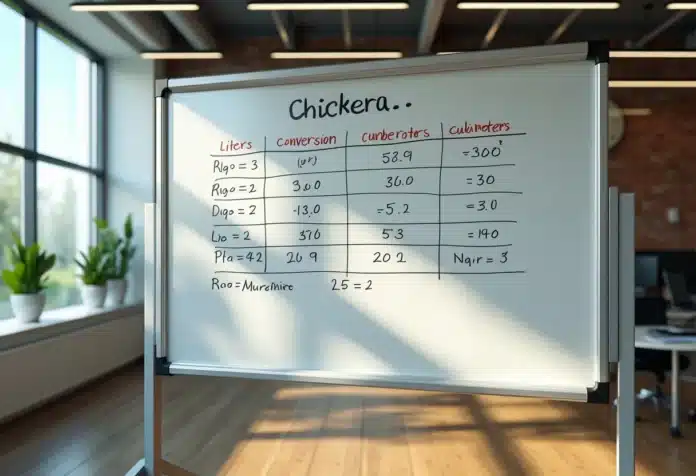 Chickera..
Liters Conversion cunberoters Cubimeters
Rigo = 3 58.9 =300
Rigo = 2 30.0 =30
Digo = 2 -13.0 =5.2 =3.0
Lio = 2 376 53 =140
Pta = 42 20 9 20 2 Nqir = 3
Roo = Murofnire 25 = 2